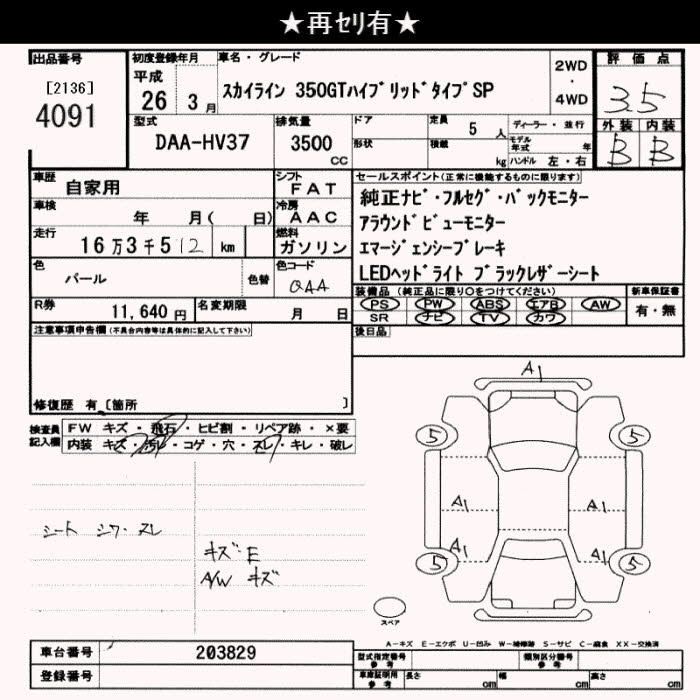 ★再セリ有★
出品番号 初度登録年月 車名・グレード 2WD・4WD 評価点
[2136] 4091 平成 26 3月 スカイライン 350GTハイブリッドタイプSP 3.5
型式 排気量 ドア 定員 5人 ディーラー・並行 外装 内装
DAA-HV37 3500cc 形状 積載 kg モデル年式 年 ハンドル 左・右 B B
車歴 自家用 シフト FAT セールスポイント(正常に機能するものに限ります)
車検 年 月( 日) 冷房 AAC 純正ナビ・フルセグ・バックモニター
走行 16万3千512km 燃料 ガソリン アラウンドビューモニター
エマージェンシーブレーキ
色 パール 色替 色コード QAA LEDヘッドライト ブラックレザーシート
R券 11,640円 名変期限 月 日 装備品(純正品に限り○をつけてください) 新車保証書
PS PW ABS エアB AW 有・無
SR ナビ TV カワ
注意事項申告欄(不具合内容等は具体的に記入して下さい) 後日品
修復歴 有〔箇所 〕
検査員記入欄 FW キズ・飛石・ヒビ割・リペア跡・×要
内装 キズ・汚れ・コゲ・穴・スレ・キレ・破レ
A1
5 5
A1 A1
シート シワ・スレ
キズ・E
A/W キズ
A1 A1
5 5
スペア
A-キズ E-エクボ U-凹み W-補修跡 S-サビ C-腐食 XX-交換済
車台番号 203829 型式指定番号 参考 類別区分番号 参考
登録番号 車庫証明用 参考 長さ cm 幅 cm 高さ cm